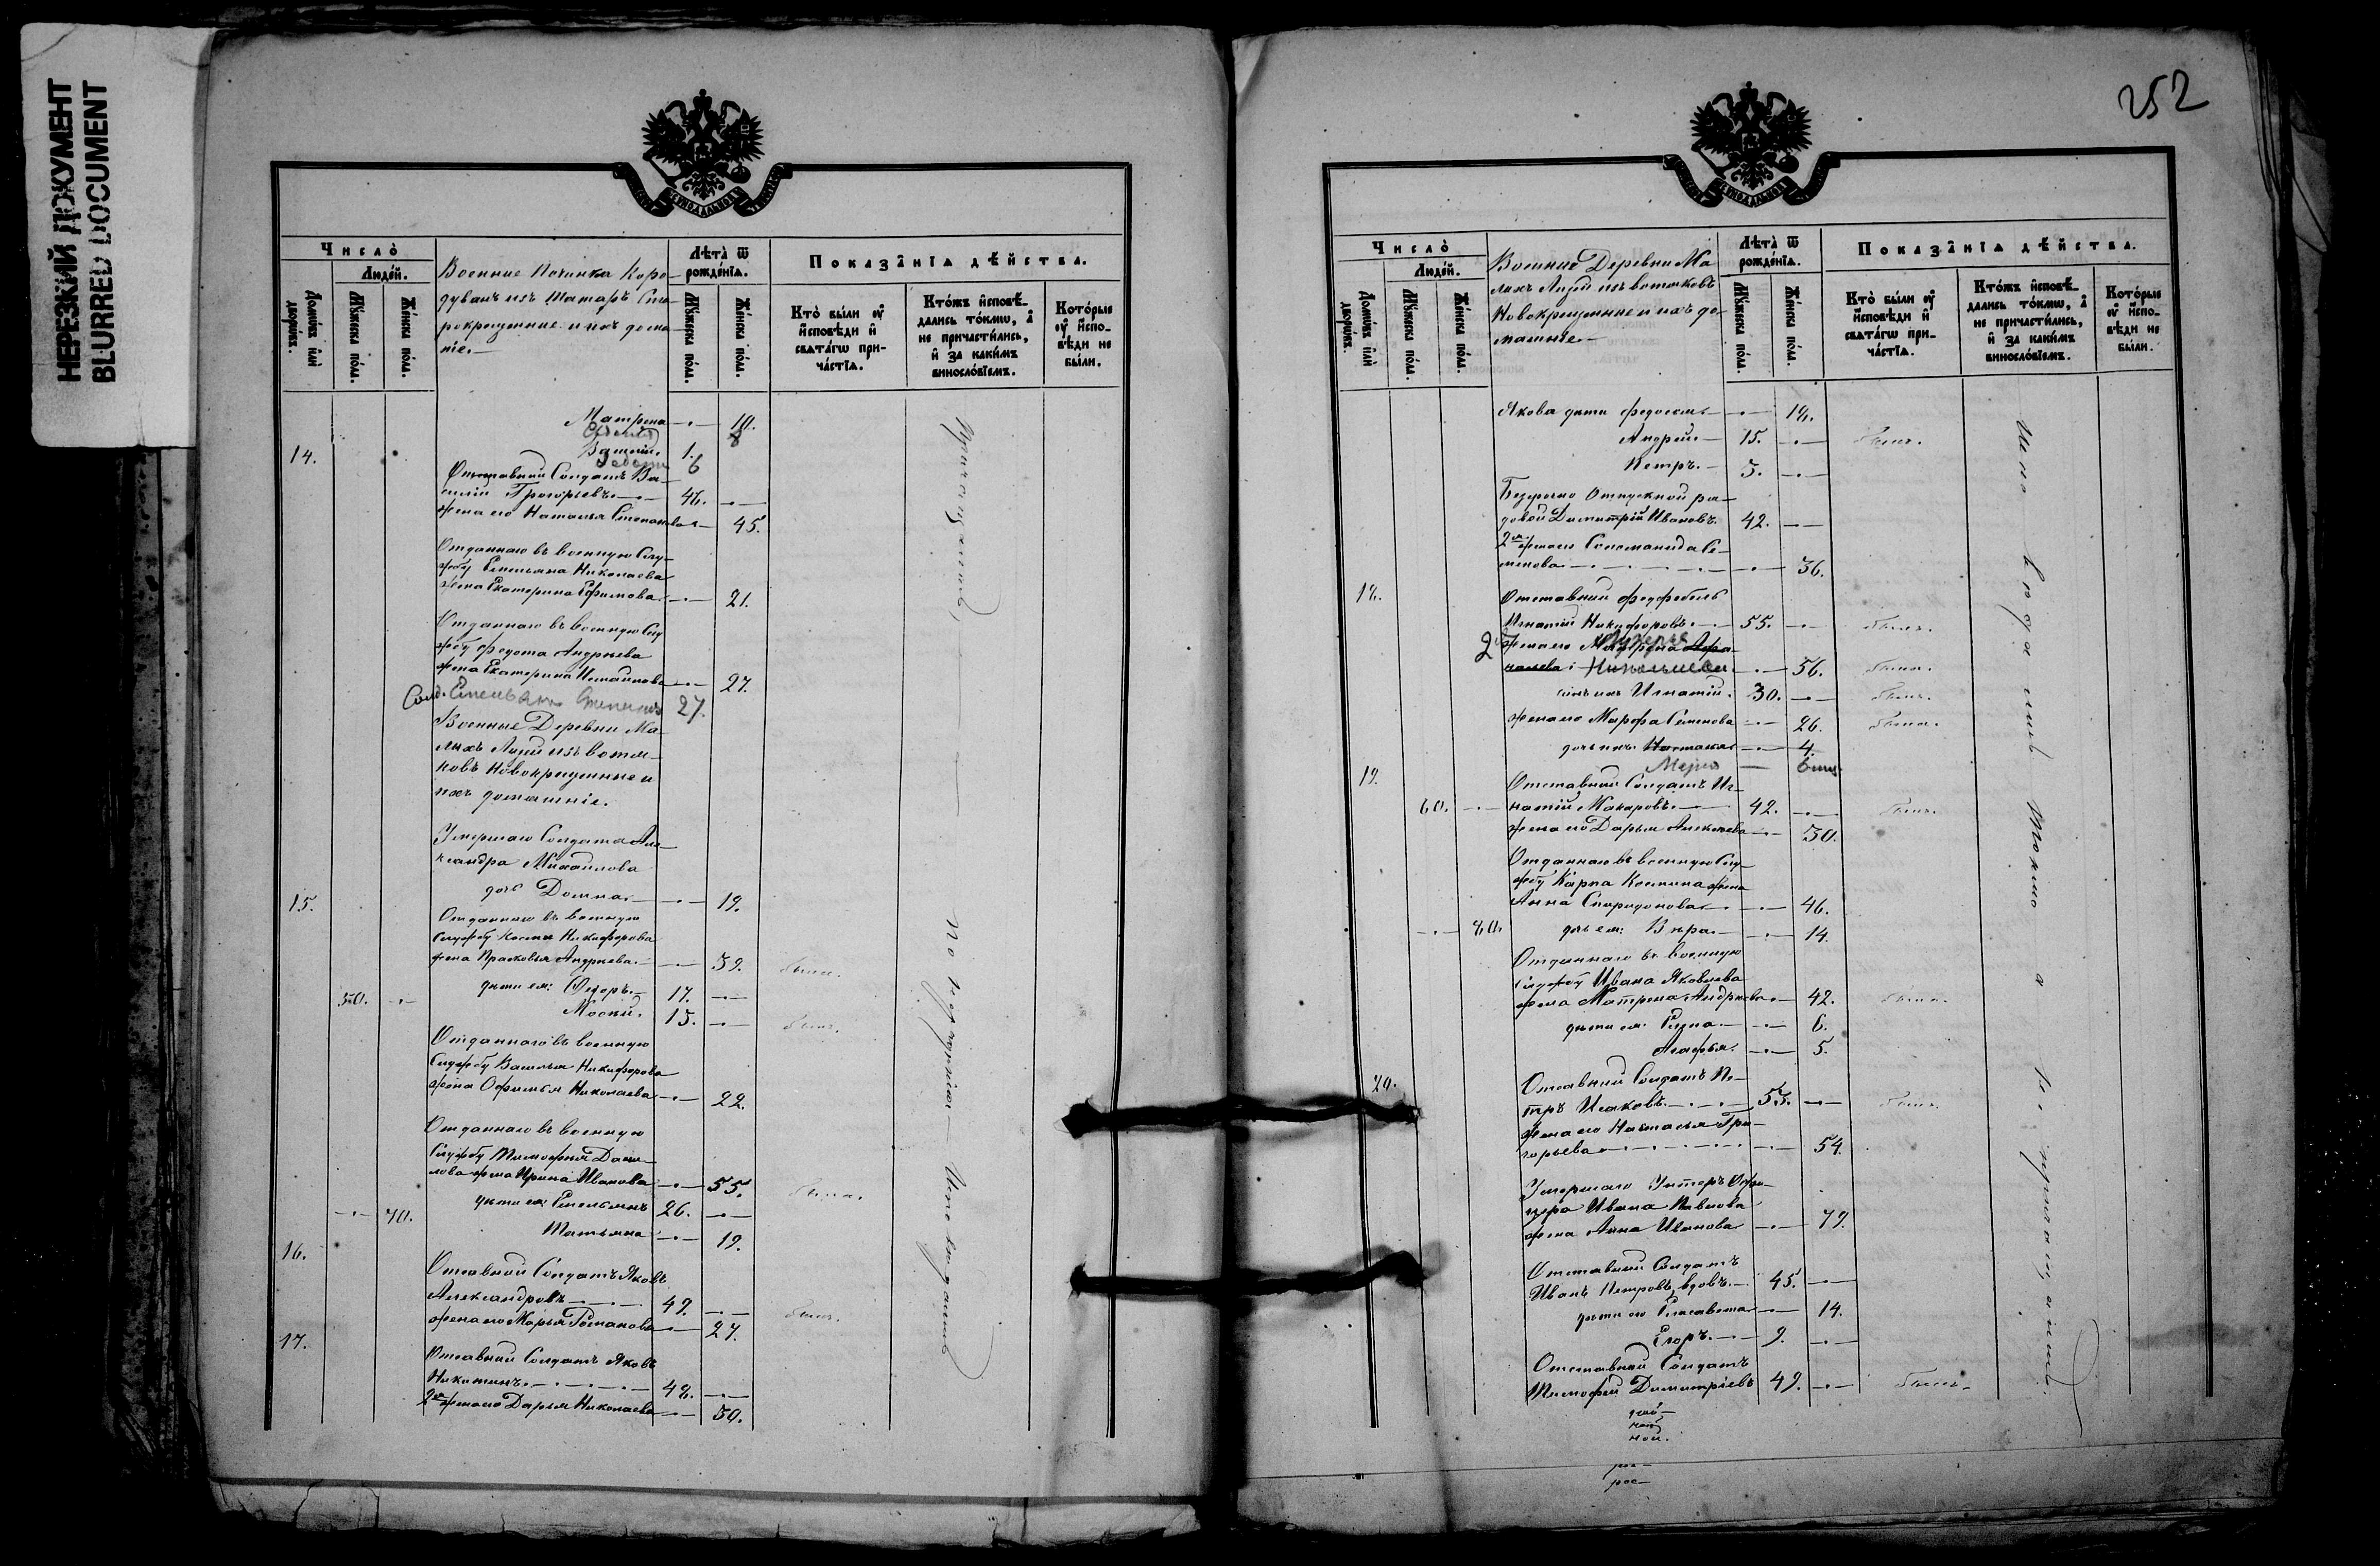 НЕРЕЗКИЙ ДОКУМЕНТ
BLURRED DOCUMENT
Число
Людей.
Домѡвъ или дворѡвъ.
Мужеска пола.
Женска пола.
Военные Починка Коро-
дуванъ изъ Татаръ Ста-
рокрещенные и ихъ дома-
ніе.
Лѣта ѿ рожденїѧ.
Мужеска пола.
Женска пола.
Показанїѧ дѣйства.
Кто были оу исповѣди и свѧтагѡ причастїѧ.
Ктожъ исповѣдались токмѡ, а не причастились, и за какимъ винословїемъ.
Которые оу исповѣди не были.
Матрена 10.
Василій 1.
14.
Отставный Солдатъ Ва-
силій Григорьевъ 48.
жена его Наталья Степанова 45.
Отданнаго въ военную Слу-
жбу Емельяна Николаева
жена Екатерина Ефимова 21.
Отданнаго въ военную Слу-
жбу Федота Андреева
жена Екатерина 27.
Солд. Емельянъ 27.
Военные Деревни Ма-
лыхъ Лызи изъ вотя-
ковъ Новокрещенные и
ихъ домашніе.
Умершаго Солдата Але-
ксандра Михайлова
дочь Домна 19.
15.
Отданнаго въ военную
Службу Косьмы Никифорова
жена Прасковья Андреева 39. была.
дѣти ея: Ѳедоръ 17.
50. Мосей. 15. былъ.
Отданнаго въ военную
Службу Василья Никифорова
жена Офимья Николаева 22.
Отданнаго въ военную
Службу Тимофея Дани-
лова жена Ирина Иванова 55. была.
дѣти ея Емельянъ 26.
70. Татьяна 19.
16.
Отставной Солдатъ Яковъ
Александровъ 49. былъ.
жена его Марья Романова 27.
17.
Отставный Солдатъ Яковъ
Никитинъ 48.
2я жена его Дарья Николаева 30.
252
Число
Людей.
Домѡвъ или дворѡвъ.
Мужеска пола.
Женска пола.
Военные Деревни Ма-
лыхъ Лызи изъ вотяковъ
Новокрещенные и ихъ до-
машніе.
Лѣта ѿ рожденїѧ.
Мужеска пола.
Женска пола.
Показанїѧ дѣйства.
Кто были оу исповѣди и свѧтагѡ причастїѧ.
Ктожъ исповѣдались токмѡ, а не причастились, и за какимъ винословїемъ.
Которые оу исповѣди не были.
Якова дѣти Федосья 18.
Андрей 15. былъ.
Петръ. 3.
Безсрочно Отпускной ря-
довой Димитрій Ивановъ 42.
2я жена его Соломанида Се-
менова 36.
18.
Отставный фелдфебель
Игнатій Никифоровъ 55. былъ.
2 жена его Лукерья
56. была.
сынъ ихъ Игнатій. 30. былъ.
жена его Марфа Семенова 26. была.
дочь ихъ Наталья 4.
Марья
19.
Отставный Солдатъ Иг-
60. натій Макаровъ 42. былъ.
жена его Дарья Алексеева 30.
Отданнаго въ военную Слу-
жбу Карпа Костина жена
Анна Спиридонова 46.
80. дочь ея: Вѣра 14.
Отданнаго въ военную
службу Ивана Яковлева
жена Матрена Андреева 42. была.
дѣти ея: 6.
Агафья 5.
20.
Отставный Солдатъ Пе-
тръ Исаковъ 55. былъ.
жена его Наталья Гри-
горьева 54.
Умершаго Унтеръ Офи-
цера Ивана Павлова
жена Анна Иванова 79.
Отставный Солдатъ
Иванъ Петровъ, вдовъ. 45.
дѣти его Елисавета 14.
Егоръ. 9.
Отставный Солдатъ
Тимофей Димитріевъ 49. былъ.